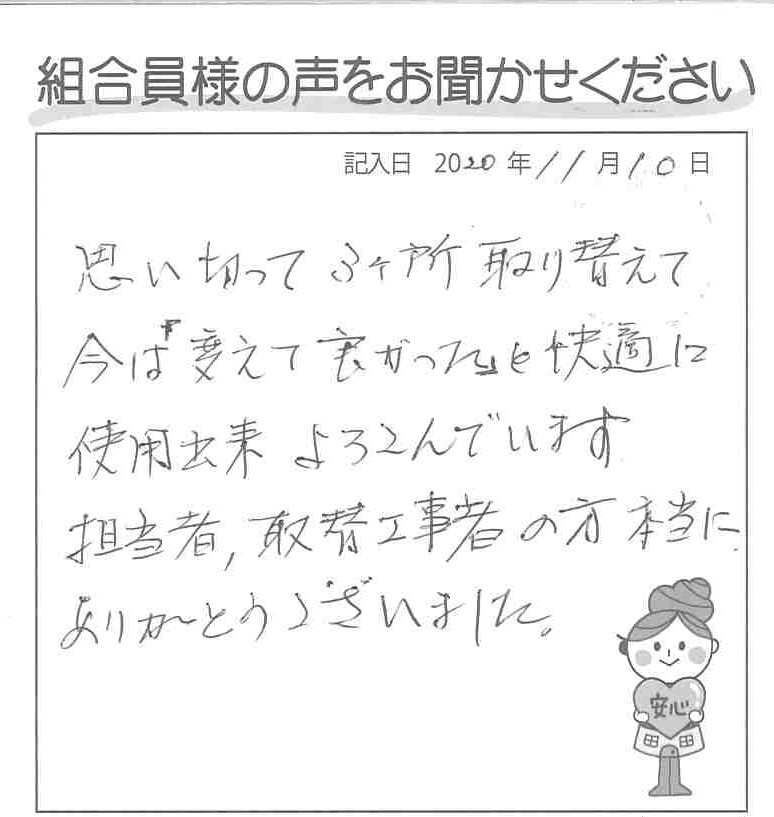 組合員様の声をお聞かせください
記入日 2020年11月10日
思い切って3ヶ所取り替えて
今は『変えて良かった』と快適に
使用出来よろこんでいます
担当者,取替工事者の方本当に
ありがとうございました。
安心